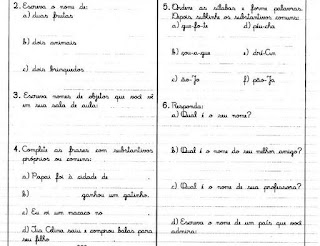 2. Escreva o nome de:
a) duas frutas
b) dois animais
c) dois brinquedos
3. Escreva nomes de objetos que você vê
em sua sala de aula:
4. Complete as frases com substantivos
próprios ou comuns:
a) Papai foi à cidade de
b) ganhou um gatinho.
c) Eu vi um macaco no
d) Tia Célina saiu e comprou balas para
seu filho
5. Ordene as sílabas e forme palavras.
Depois sublinhe os substantivos comuns:
a) que-fo-te
b)
c) ção-Jo
6. Responda:
a) Qual é o seu nome?
b) Qual é o nome do seu melhor amigo?
c) Qual é o nome de sua professora?
d) Escreva o nome de um país que você
admira: